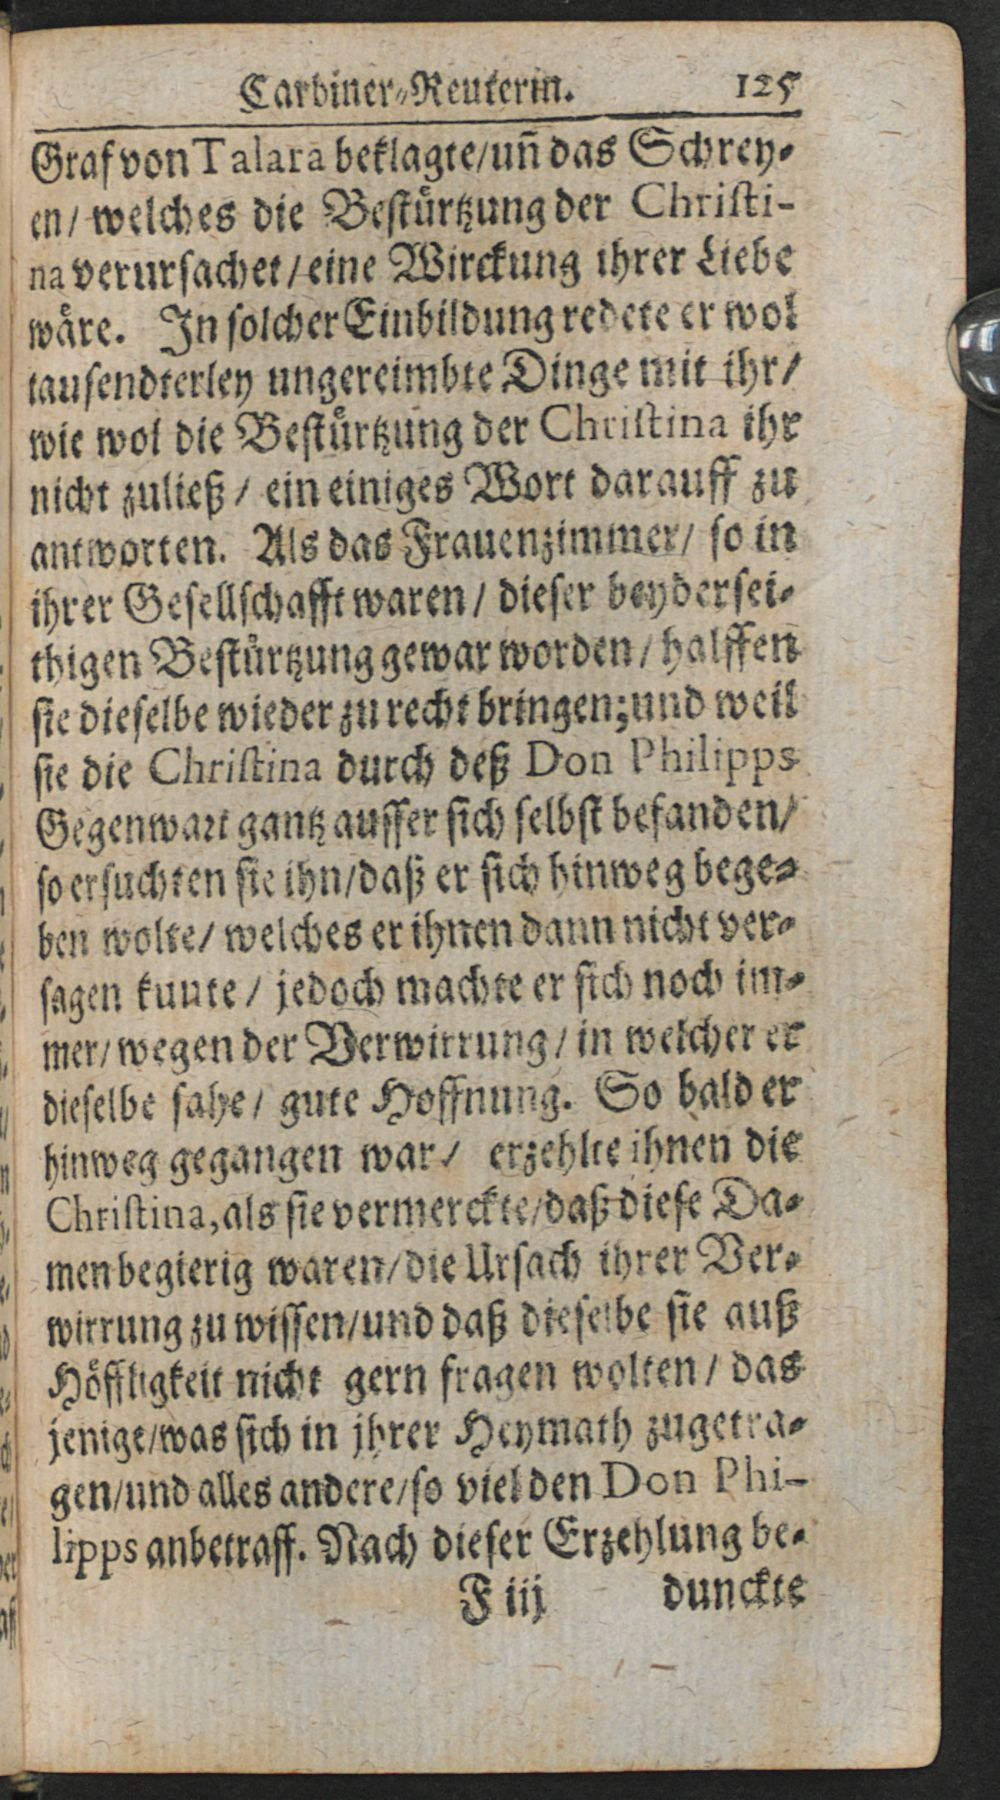 Carbiner-Reuterin. 125
Graf von Talara beklagte/uñ das Schrey-
en/ welches die Bestürtzung der Christi-
na verursachet/eine Wirckung ihrer Liebe
wäre. In solcher Einbildung redete er wol
tausendterley ungereimbte Dinge mit ihr/
wie wol die Bestürtzung der Christina ihr
nicht zuließ/ ein einiges Wort darauff zu
antworten. Als das Frauenzimmer/ so in
ihrer Gesellschafft waren/ dieser beydersei-
thigen Bestürtzung gewar worden/ halffen
sie dieselbe wieder zu recht bringen; und weil
sie die Christina durch deß Don Philipps
Gegenwart gantz ausser sich selbst befanden/
so ersuchten sie ihn/daß er sich hinweg bege-
ben wolte/ welches er ihnen dann nicht ver-
sagen kunte/ jedoch machte er sich noch im-
mer/ wegen der Verwirrung/ in welcher er
dieselbe sahe/ gute Hoffnung. So bald er
hinweg gegangen war/ erzehlte ihnen die
Christina, als sie vermerckte/daß diese Da-
men begierig waren/die Ursach ihrer Ver-
wirrung zu wissen/und daß dieselbe sie auß
Höffligkeit nicht gern fragen wolten/ das
jenige/was sich in jhrer Heymath zugetra-
gen/und alles andere/so viel den Don Phi-
lipps anbetraff. Nach dieser Erzehlung be-
F iij duncktе